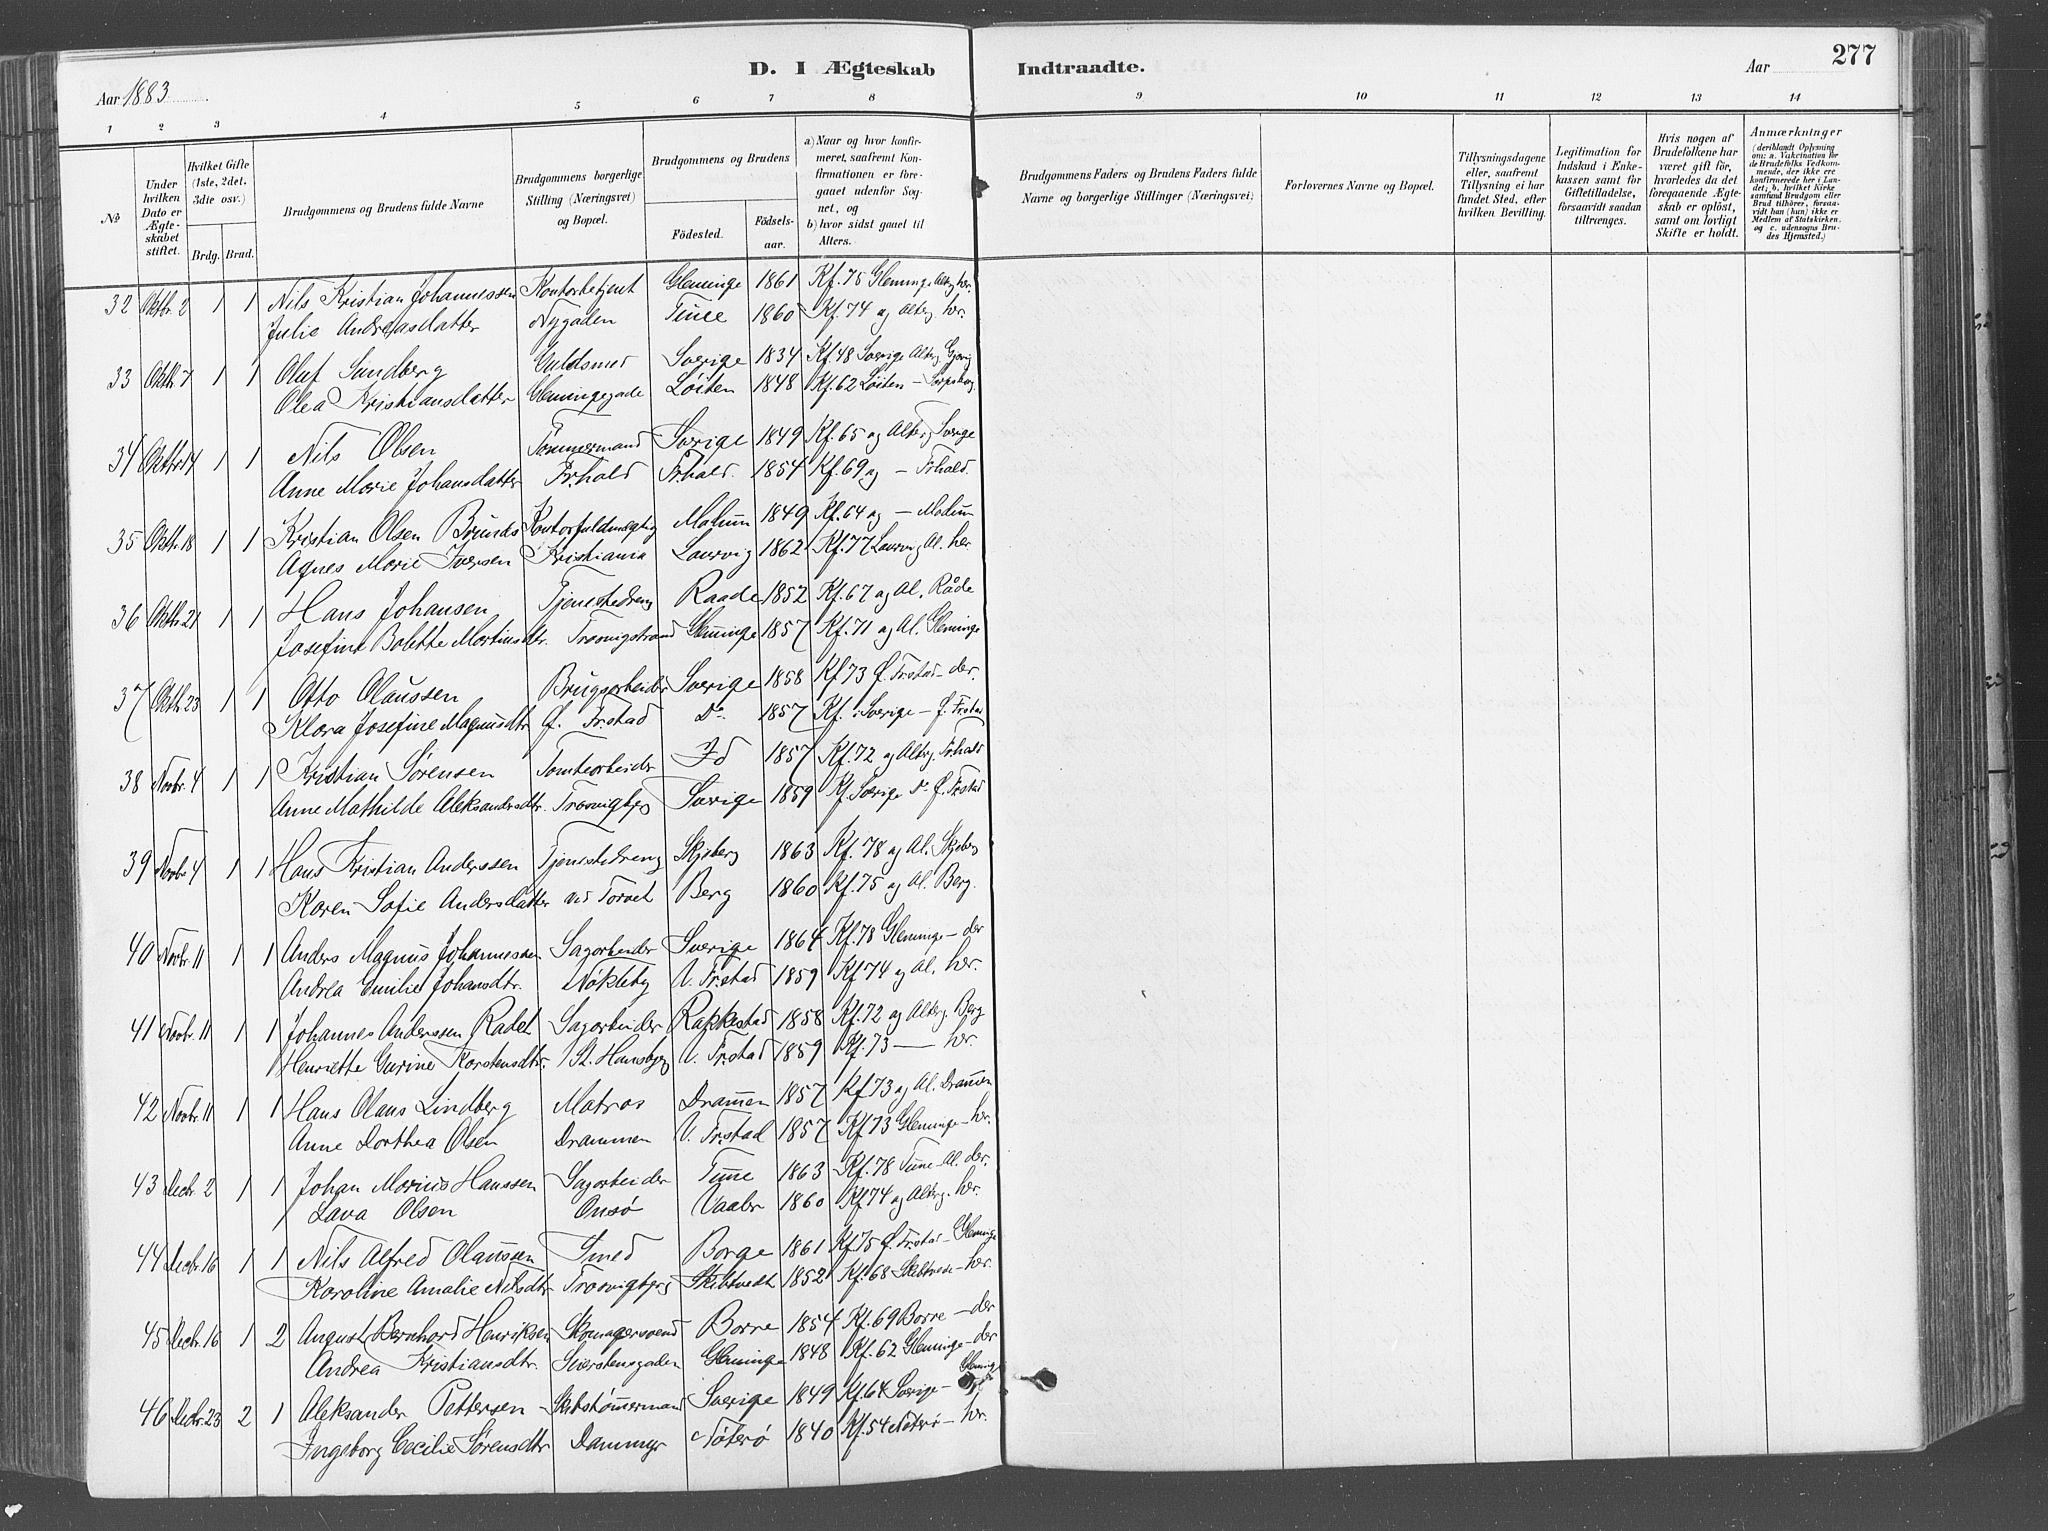 277
D. I Ægteskab Indtraadte.
Aar 1883 Aar
1 2 3 4 5 6 7 8 9 10 11 12 13 14
No
Under hvilken Dato er Ægteskabet stiftet.
Hvilket Gifte (1ste, 2det, 3die osv.)
Brdg. Brud.
Brudgommens og Brudens fulde Navne
Brudgommens borgerlige Stilling (Næringsvei) og Bopæl.
Brudgommens og Brudens
Fødested. Fødselsaar.
a) Naar og hvor konfirmeret, saafremt Konfirmationen er foregaaet udenfor Sognet, og
b) hvor sidst gaaet til Alters.
Brudgommens Faders og Brudens Faders fulde Navne og borgerlige Stillinger (Næringsvei)
Forlovernes Navne og Bopæl.
Tillysningsdagene eller, saafremt Tillysning ei har fundet Sted, efter hvilken Bevilling.
Legitimation for Indskud i Enkekassen samt for Giftetilladelse, forsaavidt saadan tiltrænges.
Hvis nogen af Brudefolkene har været gift før, hvorledes da det foregaaende Ægteskab er opløst, samt om lovligt Skifte er holdt.
Anmærkninger (deriblandt Oplysning om: a. Vakcination for de Brudefolks Vedkommende, der ikke ere konfirmerede her i Landet; b. hvilket Kirkesamfund Brudgom eller Brud tilhører, forsaavidt han (hun) ikke er Medlem af Statskirken, og c. udensogns Brudes Hjemsted.)
32 Oktbr. 2 1 1 Nils Kristian Johannessen Kontorbetjent Glemminge 1861 Kf. 75 Glemminge Alterg. her.
Julie Andreasdatter Nygaden Tune 1860 Kf. 74 og Alterg. her.
33 Oktb. 7 1 1 Oluf Sundberg Guldsmed Sverige 1834 Kf. 48 Sverige Alterg. Gjøvig
Olea Kristiansdatter Glemmingegade Løiten 1848 Kf. 62 Løiten – Sarpsborg
34 Oktbr. 14 1 1 Nils Olsen Tømmermand Sverige 1849 Kf. 65 og Alterg. Sverige
Anne Marie Johansdatter Fr.hald Fr.hald. 1854 Kf. 69 og – Fr.hald.
35 Oktb. 18 1 1 Kristian Olsen Brunæs Kontorfuldmægtig Modum 1849 Kf. 64 og – Modum
Agnes Marie Iversen Kristiania Laurvig 1862 Kf. 77 Laurvig Al. her
36 Oktb. 21 1 1 Hans Johansen Tjenestedreng Raade 1852 Kf. 67 og Al. Råde
Josefine Bolette Martinsdtr. Trosvigstrand Glemminge 1857 Kf. 71 og Al. Glemminge
37 Oktb. 23 1 1 Otto Olaussen Brugsarbeider Sverige 1858 Kf 73 Ø. Fr.stad – der.
Klara Josefine Magnusdtr. Ø. Fr.stad Do. 1857 Kf. i Sverige – Ø. Fr.stad
38 Novbr. 4 1 1 Kristian Sørensen Tomtearbeider Id 1857 Kf. 72 og Alterg. Fr.hald
Anne Mathilde Aleksandersdtr. Trosvigbjg Sverige 1859 Kf. Sverige Do Ø. Fr.stad
39 Novbr. 4 1 1 Hans Kristian Anderssen Tjenestedreng Skjeberg 1863 Kf. 78 og Al. Skjeberg
Karen Sofie Andersdatter ved Torvet Berg 1860 Kf. 75 og Al. Berg.
40 Novbr. 11 1 1 Anders Magnus Johannessen Sagarbeider Sverige 1864 Kf. 78 Glemminge – der
Andrea Emilie Johansdtr. Nøkleby V. Fr.stad 1859 Kf 74 og Al. her.
41 Novbr. 11 1 1 Johannes Anderssen Radet Sagarbeider Rakkestad 1858 Kf. 72 og Alterg. Berg
Henriette Gurine Karstensdtr. St. Hansbjg V. Fr.stad 1859 Kf. 73 – her.
42 Novbr. 11 1 1 Hans Olaus Lindberg Matros Drammen 1857 Kf 73 og Al. Drammen
Anne Dorthea Olsen Drammen V. Fr.stad 1857 Kf 73 Glemminge – her.
43 Decbr. 2 1 1 Johan Marius Hanssen Sagarbeider Tune 1863 Kf. 78 Tune – Al. der.
Lava Olsen Onsø Vaaler 1860 Kf 74 og Alterg. her.
44 Decbr. 16 1 1 Nils Alfred Olaussen Smed Borge 1861 Kf. 75 Ø. Fr.stad – Glemminge
Karoline Amalie Nilsdtr Trosvigbjg Skibtvedt 1852 Kf. 68 Skibtvedt – her.
45 Decbr. 16 1 2 August Bernhard Henriksen Skomagersvend Borre 1854 Kf. 69 Borre – der
Andrea Kristiansdtr. Glemminge 1848 Kf. 62 Glemminge – der
46 Decbr. 23 2 1 Aleksander Pettersen Skibstømmermand Sverige 1849 Kf. 64 Sverige – Glemminge
Ingeborg Cecilie Sørensdtr Dammyr Nøterø 1840 Kf. 54 Nøterø – her.